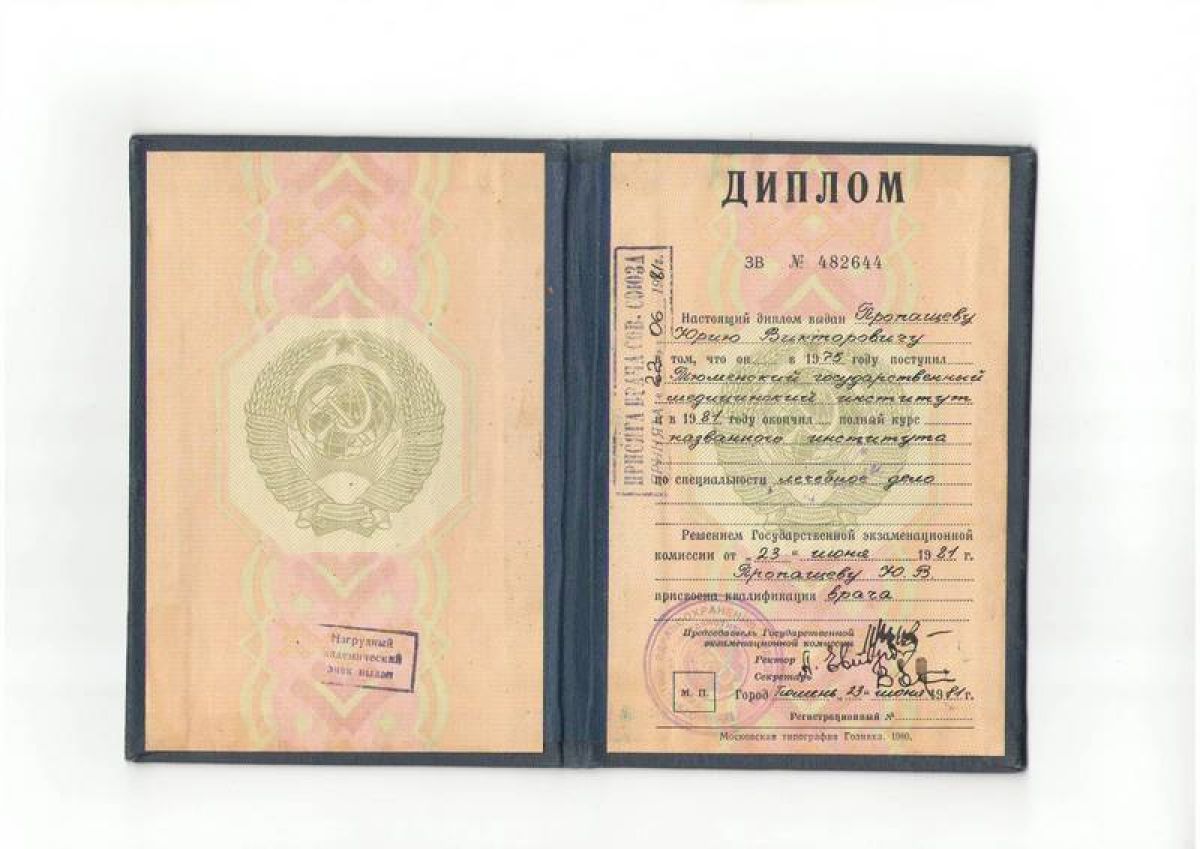 Нагрудный
академический
знак выдан
ДИПЛОМ
ЗВ № 482644
ПРИСЯГА ВРАЧА СОВ. СОЮЗА
ПРИНЯТА 22 06 1981г.
Настоящий диплом выдан Пропащеву
Юрию Викторовичу
в том, что он в 1975 году поступил
в Тюменский государственный
медицинский институт
и в 1981 году окончил полный курс
названного института
по специальности лечебное дело
Решением Государственной экзаменационной
комиссии от „23" июня 1981 г.
Пропащеву Ю.В
присвоена квалификация врача
Председатель Государственной
экзаменационной комиссии
Ректор
Секретарь
М. П.
Город Тюмень „23" июня 1981 г.
Регистрационный №
Московская типография Гознака. 1980.